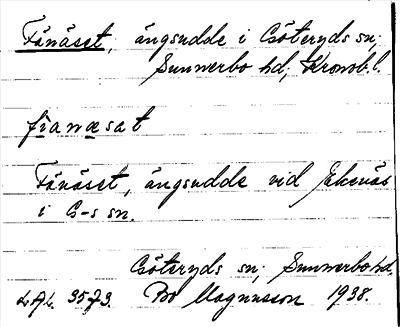 Fänäset, ängsudde i Göteryds sn;
Sunnerbo hd, Kronob. l.
fianæsat
Fänäset, ängsudde vid Ekenäs
i G-s sn.
Göteryds sn; Sunnerbo hd.
3573. Bo Magnusson 1938.